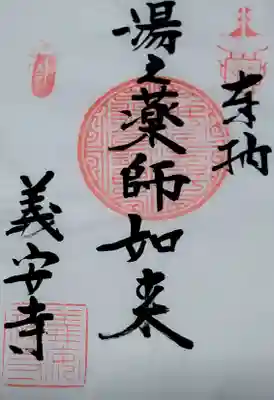 奉拝
湯之薬師如来
義安寺